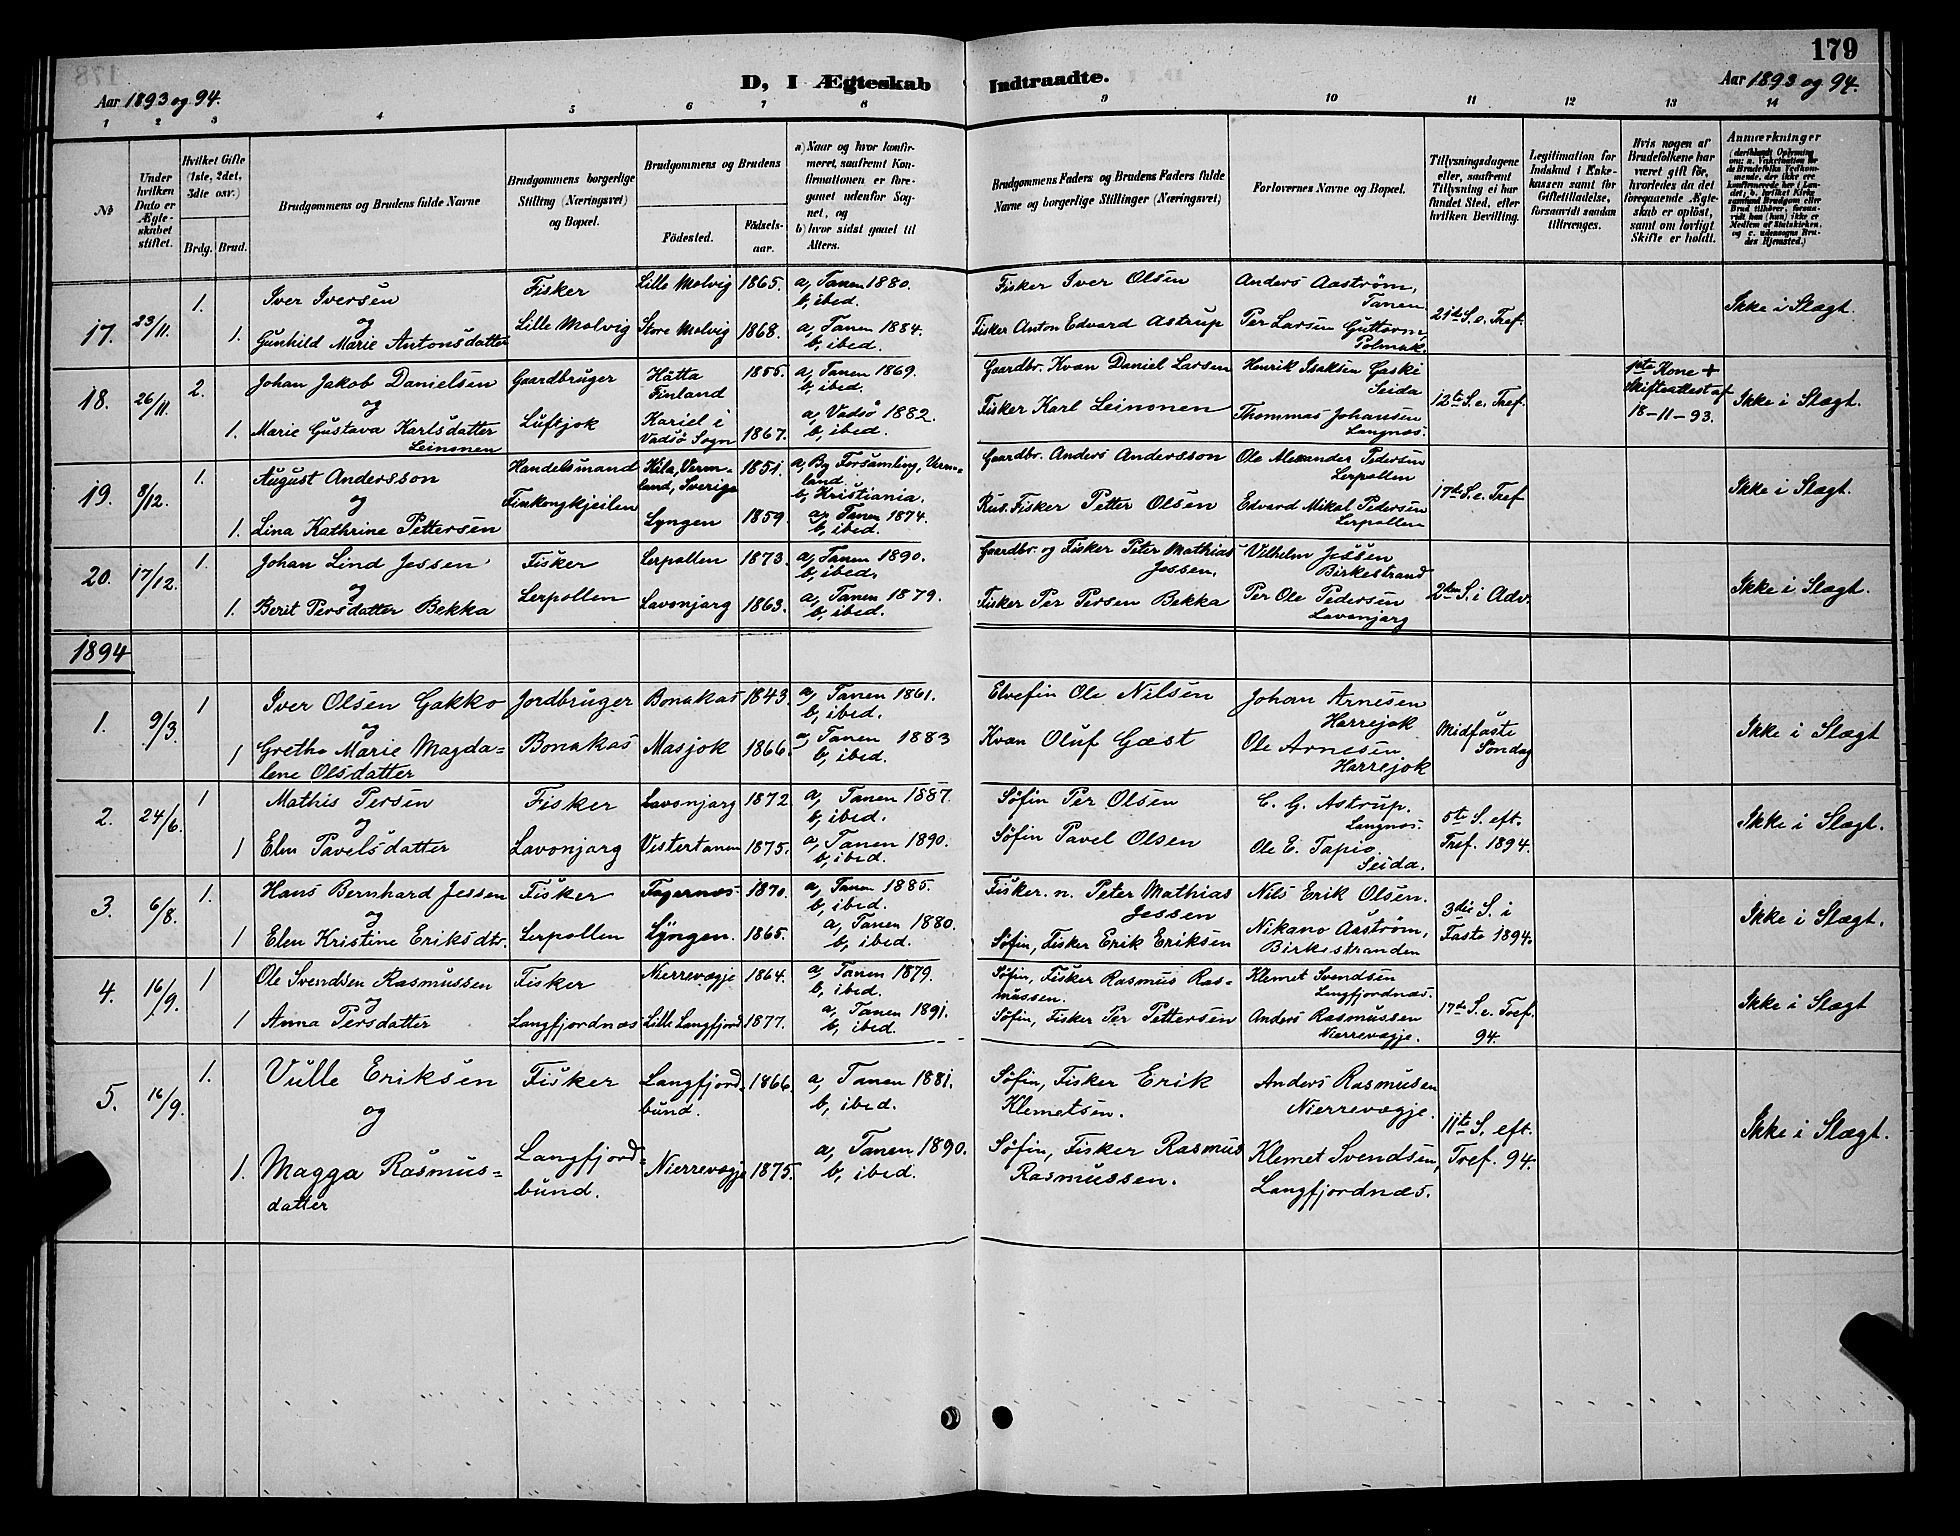 179
D, I Ægteskab Indtraadte.
Aar 1893 og 94.
Aar 1893 og 94.
1 2 3 4 5 6 7 8 9 10 11 12 13 14
№
Under hvilken Dato er Ægteskabet stiftet.
Hvilket Gifte (1ste, 2det, 3die osv.)
Brdg. Brud.
Brudgommens og Brudens fulde Navne
Brudgommens borgerlige Stilling (Næringsvei) og Bopæl.
Brudgommens og Brudens
Födested.
Födsels-aar.
a) Naar og hvor konfirmeret, saafremt Konfirmationen er foregaaet udenfor Sognet, og
b) hvor sidst gaaet til Alters.
Brudgommens Faders og Brudens Faders fulde Navne og borgerlige Stillinger (Næringsvei)
Forlovernes Navne og Bopæl.
Tillysningsdagene eller, saafremt Tillysning ei har fundet Sted, efter hvilken Bevilling.
Legitimation for Indskud i Enkekassen samt for Giftetilladelse, forsaavidt saadan tiltrænges.
Hvis nogen af Brudefolkene har været gift för, hvorledes da det foregaaende Ægteskab er oplöst, samt om lovligt Skifte er holdt.
Anmærkninger
17. 23/11. 1. Iver Iversen Fisker Lille Molvig 1865. a, Tanen 1880. b, ibid. Fisker Iver Olsen Anders Aaström, Tanen 21de S. e. Tref. Ikke i Slægt.
og
1. Gunhild Marie Antonsdatter Lille Molvig Store Molvig 1868. a, Tanen 1884. b, ibid. Fisker Anton Edvard Astrup Per Larsen Guttorm, Polmak.
18. 26/11. 2. Johan Jakob Danielsen Gaardbruger Hätta Finland 1855. a, Tanen 1869. b, ibid. Gaardbr. Kvan Daniel Larsen Henrik Isaksen Gaski Seida 12te S. e. Tref. 1ste Kone + Skifteattest af 18-11-93. Ikke i Slægt.
og
1. Marie Gustava Karlsdatter Leinonen Luftjok Kariel i Vadsö Sogn 1867. a, Vadsö 1882. b, ibid. Fisker Karl Leinonen Thommas Johansen Langnæs.
19. 8/12. 1. August Andersson Handelsmand Kila, Vermland, Sverige 1851. a, By Forsamling, Vermland b, Kristiania. Gaardbr. Anders Andersson Ole Alexander Pedersen Lerpollen 17de S. e. Tref. Ikke i Slægt.
og
1. Lina Kathrine Pettersen Finkongkjeilen Lyngen 1859. a, Tanen 1874. b, ibid. Rus. Fisker Petter Olsen Edvard Mikal Pedersen Lerpollen
20. 17/12. 1. Johan Lind Jessen Fisker Lerpollen 1873. a, Tanen 1890. b, ibid. Gaardbr. og Fisker Peter Mathias Jessen. Vilhelm Jessen Birkestrand 2den S. i Adv. Ikke i Slægt.
og
1. Berit Persdatter Bekka Lerpollen Lavonjarg 1863. a, Tanen 1879. b, ibid. Fisker Per Persen Bekka Per Ole Pedersen Lavonjarg
1894
1. 9/3. 1 Iver Olsen Gakko Jordbruger Bonakas 1843. a, Tanen 1861. b, ibid. Elvefin Ole Nilsen Johan Arnesen Harrejok Midfaste Søndag Ikke i Slægt
og
1 Grethe Marie Magdalene Olsdatter Bonakas Masjok 1866. a, Tanen 1883 b, ibid. Kvan Oluf Gæst Ole Arnesen Harrejok
2. 24/6. 1 Mathis Persen Fisker Lavonjarg 1872 a, Tanen 1887. b, ibid. Søfin Per Olsen C. G. Astrup. Langnæs. 5te S. eft. Tref. 1894. Ikke i Slægt.
og
1 Elen Pavelsdatter Lavonjarg Vestertanen 1875. a, Tanen 1890. b, ibid. Søfin Pavel Olsen Ole E. Tapio Seida.
3. 6/8. 1. Hans Bernhard Jessen Fisker Fagernæs 1870. a, Tanen 1885. b, ibid. Fisker. n. Peter Mathias Jessen Nils Erik Olsen. 3die S. i Faste 1894. Ikke i Slægt.
og
1 Elen Kristine Eriksdtr. Lerpollen Lyngen. 1865. a, Tanen 1880. b, ibid. Søfin, Fisker Erik Eriksen Nikano Aaström, Birkestranden
4. 16/9. 1 Ole Svendsen Rasmussen Fisker Nierrevægje 1864. a, Tanen 1879. b, ibid. Søfin, Fisker Rasmus Rasmussen. Klemet Svendsen Langfjordnæs. 17de S. e. Tref. 94. Ikke i Slægt
og
1 Anna Persdatter Langfjordnæs Lille Langfjord 1877. a, Tanen 1891. b, ibid. Søfin, Fisker Per Pettersen Anders Rasmussen Nierrevægje.
5. 16/9. 1. Vulle Eriksen Fisker Langfjordbund. 1866. a, Tanen 1881. b, ibid. Søfin, Fisker Erik Klemetsen. Anders Rasmusen Nierrevægje. 11te S. eft. Tref. 94. Ikke i Slægt.
og
1. Magga Rasmusdatter Langfjordbund. Nierrevægje 1875. a, Tanen 1890. b, ibid. Søfin, Fisker Rasmus Rasmussen. Klemet Svendsen, Langfjordnæs.